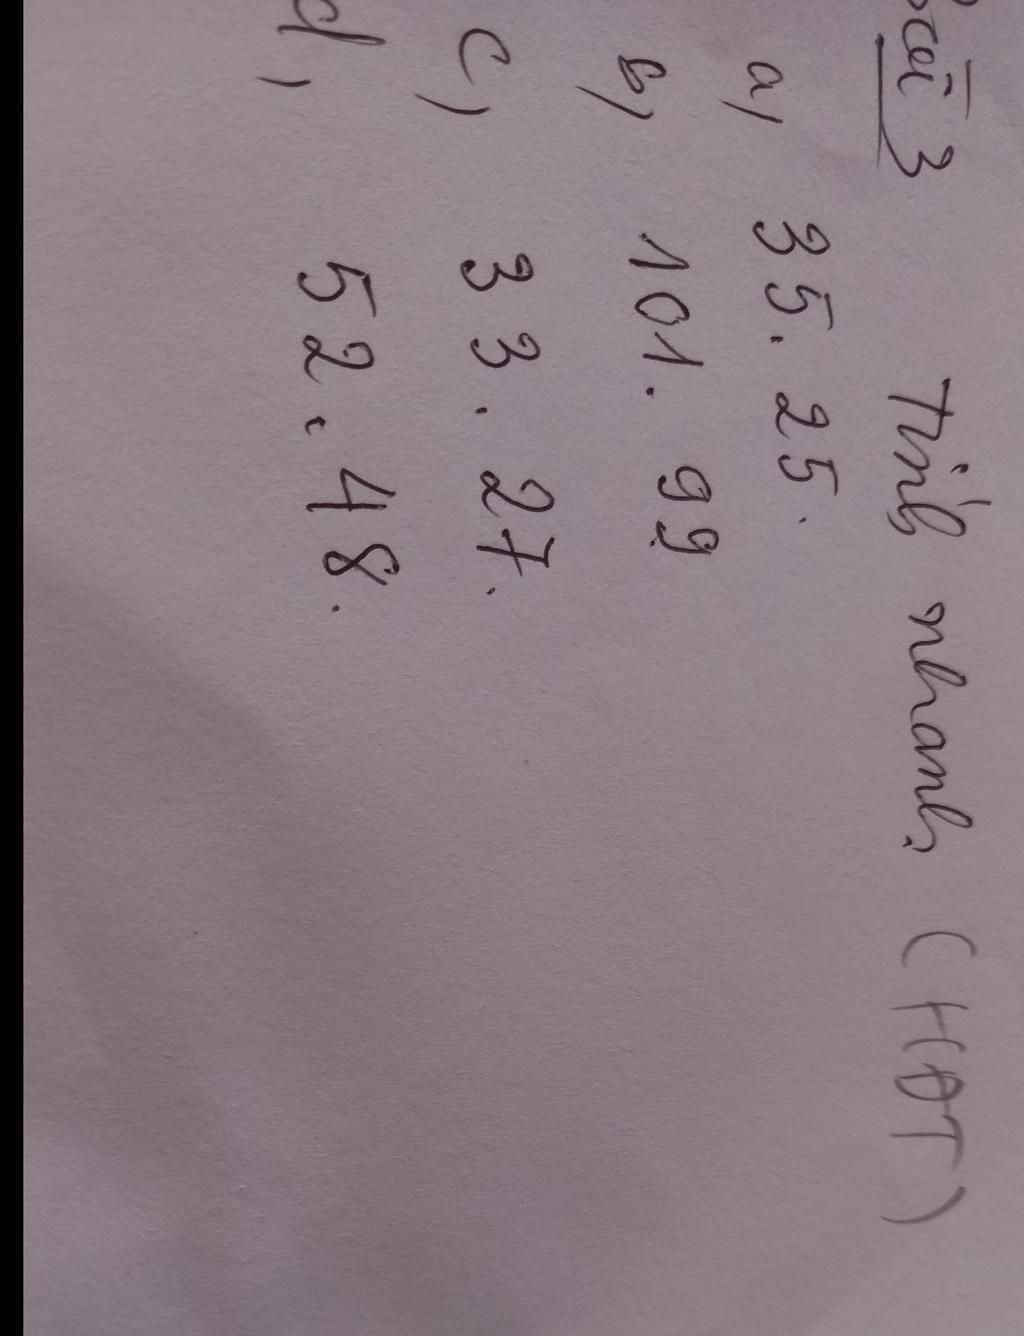 Bài 3 Tính nhanh (HĐT)
a, 35. 25.
b, 101. 99
c, 33. 27.
d, 52. 48.